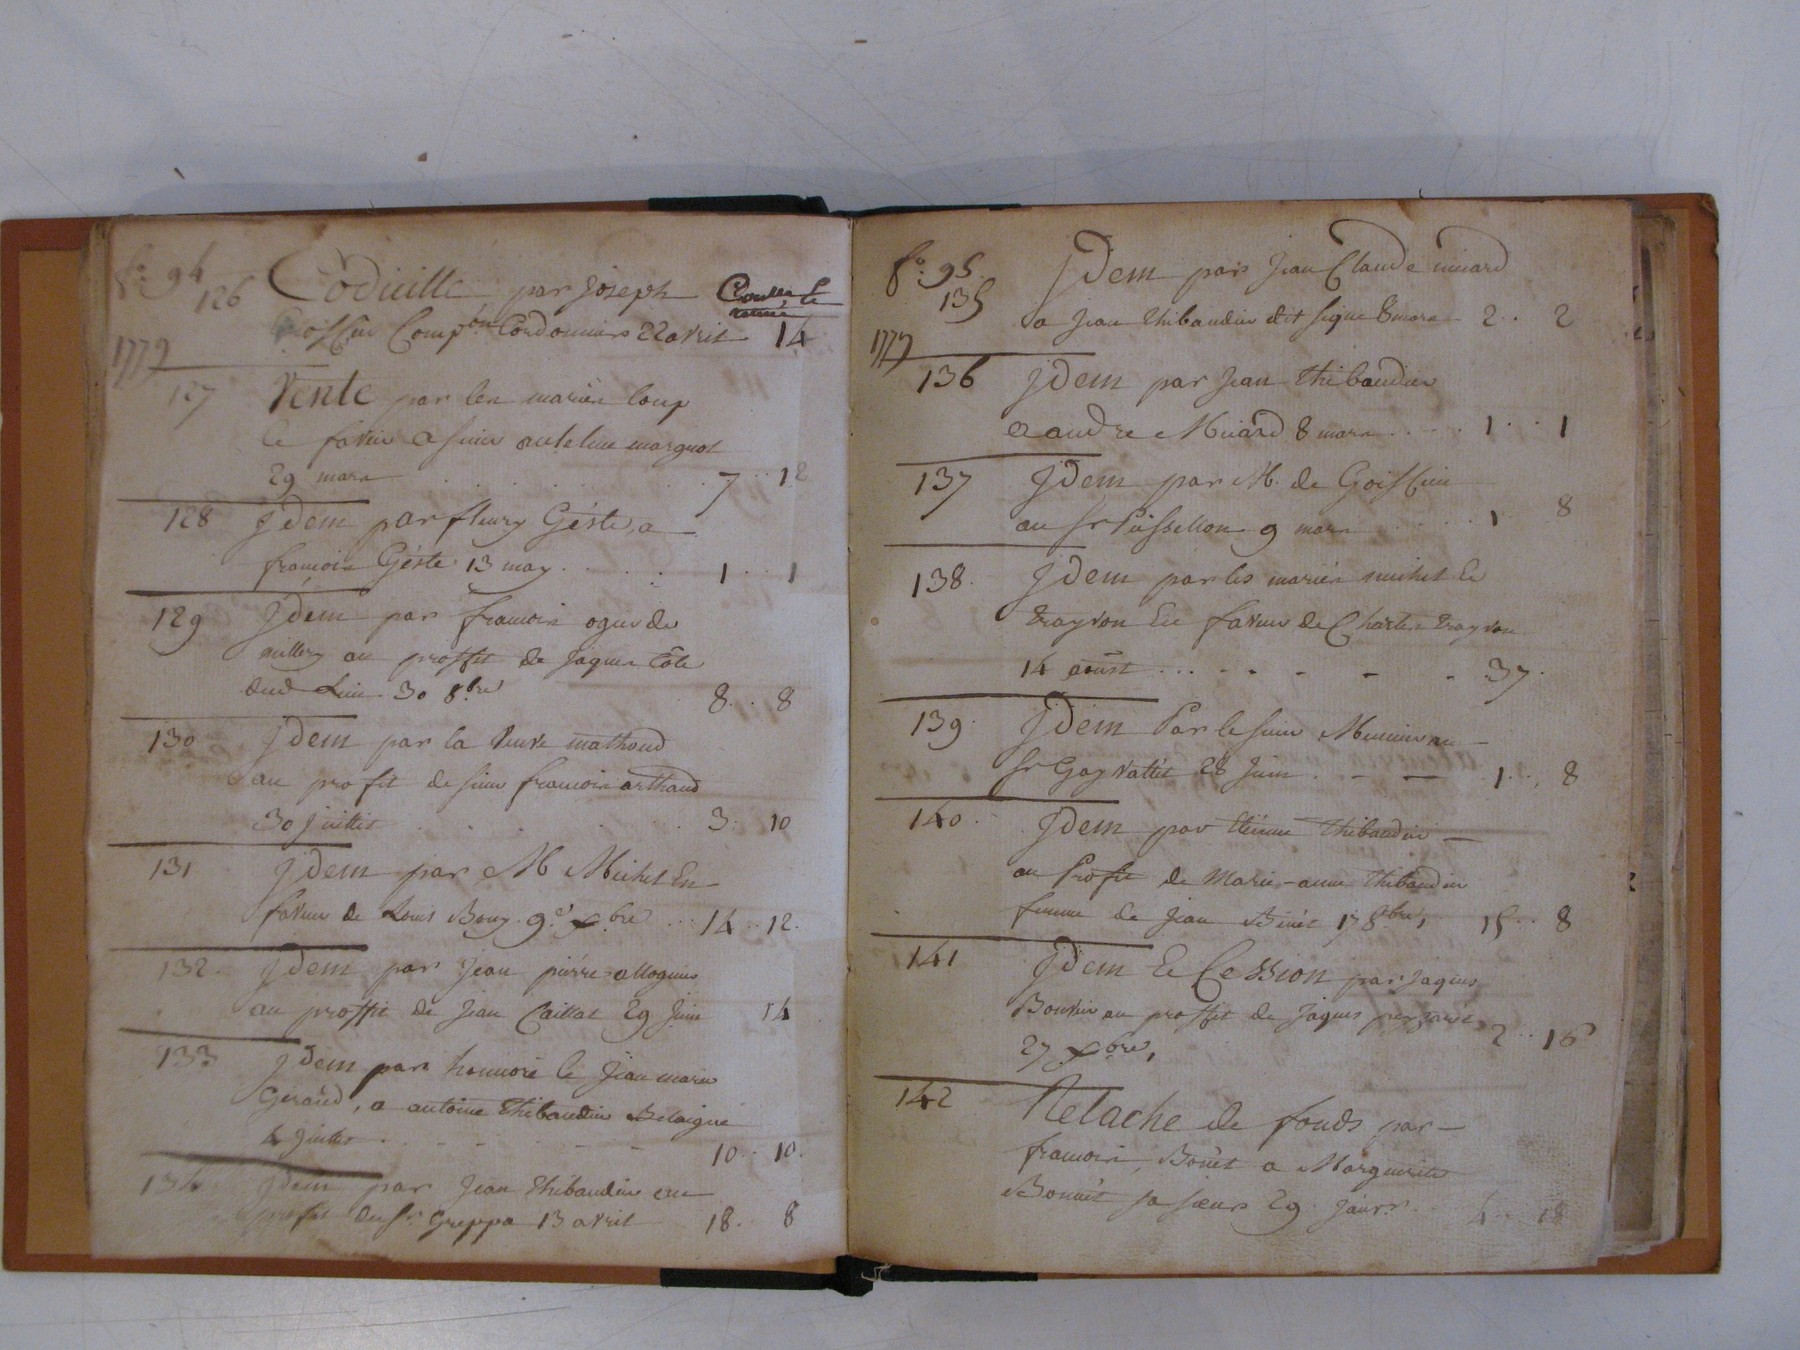 fo. 94
126 Codicille par Joseph
Comp.on Cordonniers 22 avril 14
1779
127 Vente par les mariés loup
29 mars 7 .. 12
128 Jdem par fleury Géste, a
francois Géste 13 may 1 .. 1
129 Jdem par francois ogier de
millery au proffit de Jaques Côte
30 8.bre 8 .. 8
130 Jdem par la veuve mathoud
au profit de sieur francois arthaud
30 Juillet 3 . 10
131 Jdem par M Michel En
faveur de Louis Bouy . 9.e x.bre .. 14 .. 12.
132. Jdem par Jean piérre
au proffit de Jean Caillat 29 Juin 14
133 Jdem par honnoré & Jean marie
Geraud, a antoine Thibaudier Belaigue
4 Juillet 10 .. 10.
134 Jdem par Jean Thibaudier au
profit du Sr Greppo 13 avril 18 . 8
fo. 95
135 Jdem par Jean Claude miard
a Jean thibaudier dit figue 8 mars 2 .. 2
1779
136 Jdem par Jean Thibaudier
a andre Miard 8 mars 1 .. 1
137 Jdem par M. de
au Sr 9 mars 1 8
138. Jdem par les mariés michel &
trayvon En faveur de Charles trayvon
14 aoust 37.
139. Jdem Par le sieur au
Sr Gay 28 Juin 1 .. 8
140. Jdem par Etienne Thibaudier
au Profit de Marie-anne thibaudier
femme de Jean Binét 17 8bre, 15 .. 8
141 Jdem & Cession par Jaques
Bouvier au proffit de Jaques
27 xbre, 2 .. 16
142 Relache de fonds par
francois Bonét a Marguerite
Bonnét sa sœur 29 Janvr. 4 .. 18